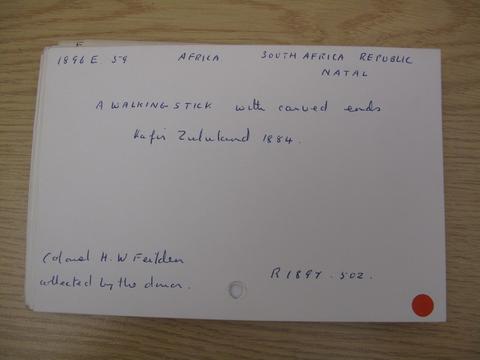 1896 E 59 AFRICA SOUTH AFRICA REPUBLIC
NATAL
A WALKING STICK with carved ends
Kafir Zululand 1884.
Colonel H. W Feilden
collected by the donor.
R 1897.502.